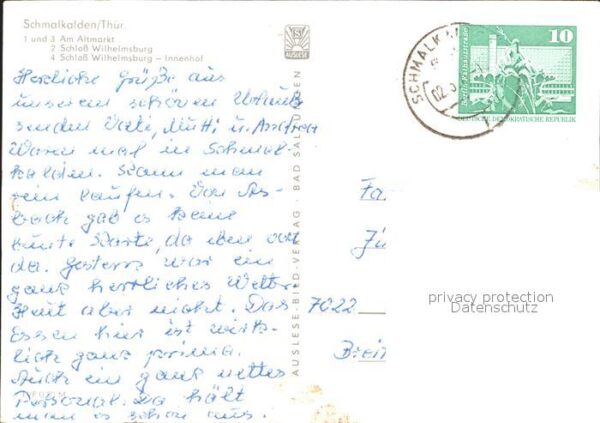 Schmalkalden/Thür.
1 und 3 Am Altmarkt
2 Schloß Wilhelmsburg
4 Schloß Wilhelmsburg – Innenhof
Herzliche Grüße aus
unserem schönen Urlaub
senden Vati, Mutti u.
Waren mal in Schmal-
kalden. Kann man
fein laufen. Von As-
bach gab es keine
bunte Karte, da eben
da. Gestern war ein
ganz herrliches Wetter
Heut aber nicht. Das
Essen hier ist wirk-
lich ganz prima.
Auch ein ganz nettes
Personal. Da hält
man es schon aus.
AUSLESE-BILD-VERLAG · BAD SALZUNGEN
SCHMALKALDEN
02
10
Berlin, Rathausstraße
DEUTSCHE DEMOKRATISCHE REPUBLIK
Fa
7022
Brei
privacy protection
Datenschutz